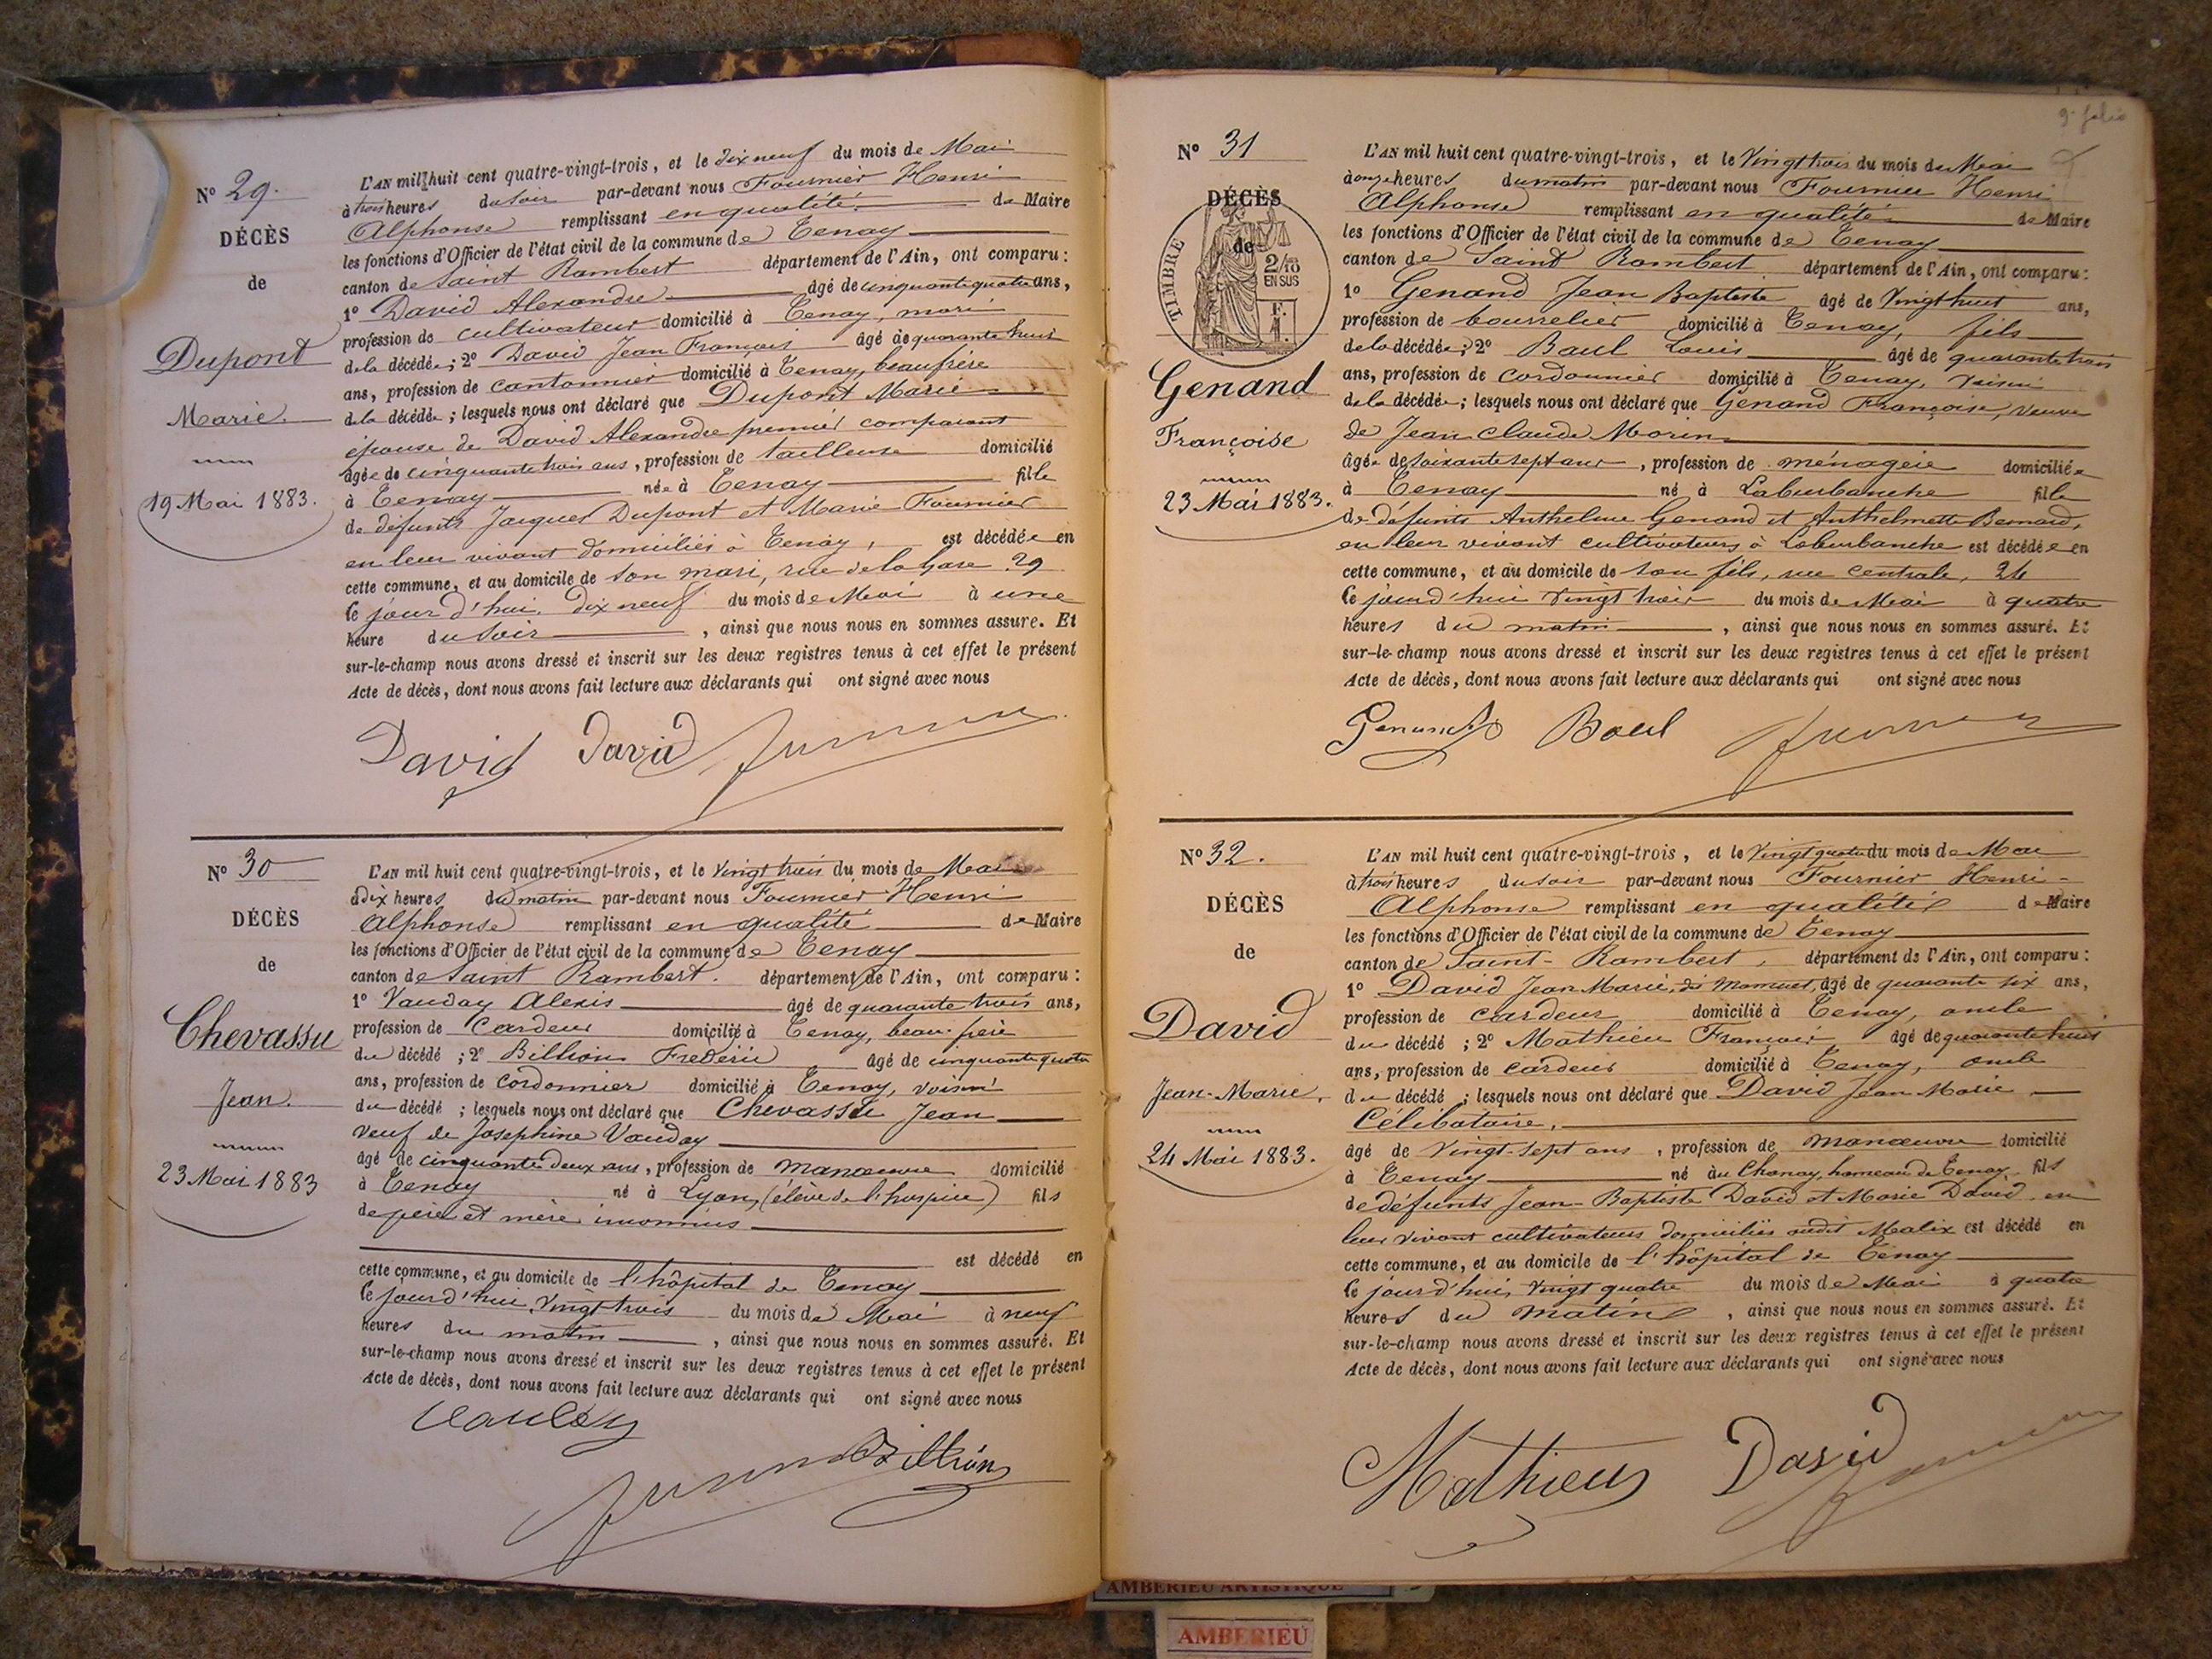 N° 29.
DÉCÈS
de
Dupont
Marie.
19 Mai 1883.
L'AN mil huit cent quatre-vingt-trois, et le dix neuf du mois de Mai
à trois heures du soir par-devant nous Fournier Henri
Alphonse remplissant en qualité de Maire
les fonctions d'Officier de l'état civil de la commune de Tenay
canton de Saint Rambert département de l'Ain, ont comparu :
1° David Alexandre âgé de cinquante quatre ans,
profession de cultivateur domicilié à Tenay, mari
de la décédée ; 2° David Jean François âgé de quarante huit
ans, profession de cantonnier domicilié à Tenay, beau frère
de la décédée ; lesquels nous ont déclaré que Dupont Marie
épouse de David Alexandre premier comparant
âgée de cinquante trois ans, profession de tailleuse domicilié
à Tenay née à Tenay fille
de defunts Jacques Dupont et Marie Fournier
en leur vivant domiciliés à Tenay, est décédée en
cette commune, et au domicile de son mari, rue de la Gare 29
le jour d'hui dix neuf du mois de Mai à une
heure du soir , ainsi que nous nous en sommes assuré. Et
sur-le-champ nous avons dressé et inscrit sur les deux registres tenus à cet effet le présent
Acte de décès, dont nous avons fait lecture aux déclarants qui ont signé avec nous
David David
N° 30
DÉCÈS
de
Chevassu
Jean.
23 Mai 1883
L'AN mil huit cent quatre-vingt-trois, et le vingt trois du mois de Mai
à dix heures du matin par-devant nous Fournier Henri
Alphonse remplissant en qualité de Maire
les fonctions d'Officier de l'état civil de la commune de Tenay
canton de Saint Rambert. département de l'Ain, ont comparu :
1° Vauday Alexis âgé de quarante trois ans,
profession de cardeur domicilié à Tenay, beau-frère
du décédé ; 2° Billion Frederic âgé de cinquante quatre
ans, profession de cordonnier domicilié à Tenay, voisin
du décédé ; lesquels nous ont déclaré que Chevassu Jean
veuf de Josephine Vauday
âgé de cinquante deux ans, profession de manœuvre domicilié
à Tenay né à Lyon, (élève de l'hospice) fils
de père et mère inconnus
est décédé en
cette commune, et au domicile de l'hôpital de Tenay
le jourd'hui, vingt trois du mois de Mai à neuf
heures du matin , ainsi que nous nous en sommes assuré. Et
sur-le-champ nous avons dressé et inscrit sur les deux registres tenus à cet effet le présent
Acte de décès, dont nous avons fait lecture aux déclarants qui ont signé avec nous
Billion
9e folio
N° 31
DÉCÈS
de
TIMBRE
2/10
EN SUS
Genand
Françoise
23 Mai 1883.
L'AN mil huit cent quatre-vingt-trois, et le Vingt trois du mois de Mai
à onze heures du matin par-devant nous Fournier Henri
Alphonse remplissant en qualité de Maire
les fonctions d'Officier de l'état civil de la commune de Tenay
canton de Saint Rambert département de l'Ain, ont comparu :
1° Genand Jean Baptiste âgé de Vingt huit ans,
profession de bourrelier domicilié à Tenay, fils
de la décédée ; 2° Baul Louis âgé de quarante trois
ans, profession de cordonnier domicilié à Tenay, voisin
de la décédée ; lesquels nous ont déclaré que Genand Françoise, veuve
de Jean Claude Morin
âgée de soixante sept ans, profession de ménagère domiciliée
à Tenay né à Laburbanche fille
de défunts Anthelme Genand et Anthelmette Bernard,
en leur vivant cultivateurs à Laburbanche est décédée en
cette commune, et au domicile de son fils, rue centrale, 24
le jourd'hui vingt trois du mois de Mai à quatre
heures du matin , ainsi que nous nous en sommes assuré. Et
sur-le-champ nous avons dressé et inscrit sur les deux registres tenus à cet effet le présent
Acte de décès, dont nous avons fait lecture aux déclarants qui ont signé avec nous
Baul
N° 32.
DÉCÈS
de
David
Jean-Marie.
24 Mai 1883.
L'AN mil huit cent quatre-vingt-trois, et le Vingt quatre du mois de Mai
à trois heures du soir par-devant nous Fournier Henri-
Alphonse remplissant en qualité de Maire
les fonctions d'Officier de l'état civil de la commune de Tenay
canton de Saint-Rambert, département de l'Ain, ont comparu :
1° David Jean Marie, âgé de quarante six ans,
profession de cardeur domicilié à Tenay, oncle
du décédé ; 2° Mathieu François âgé de quarante huit
ans, profession de cardeur domicilié à Tenay, oncle
du décédé ; lesquels nous ont déclaré que David Jean Marie
Célibataire,
âgé de vingt-sept ans , profession de manœuvre domicilié
à Tenay né au Chanay, hameau de Tenay fils
de défunts Jean-Baptiste David et Marie David en
leur vivant cultivateurs domiciliés audit Malix est décédé en
cette commune, et au domicile de l'hôpital de Tenay
le jourd'hui, vingt quatre du mois de Mai à quatre
heures du matin , ainsi que nous nous en sommes assuré. Et
sur-le-champ nous avons dressé et inscrit sur les deux registres tenus à cet effet le présent
Acte de décès, dont nous avons fait lecture aux déclarants qui ont signé avec nous
Mathieu David
AMBERIEU ARTISTIQUE
AMBERIEU